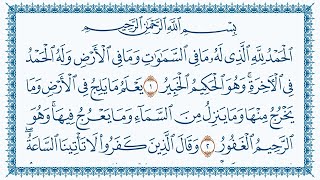 بِسْمِ اللَّهِ الرَّحْمَٰنِ الرَّحِيمِ
الْحَمْدُ لِلَّهِ الَّذِي لَهُ مَا فِي السَّمَاوَاتِ وَمَا فِي الْأَرْضِ وَلَهُ الْحَمْدُ
فِي الْآخِرَةِ ۚ وَهُوَ الْحَكِيمُ الْخَبِيرُ ١ يَعْلَمُ مَا يَلِجُ فِي الْأَرْضِ وَمَا
يَخْرُجُ مِنْهَا وَمَا يَنْزِلُ مِنَ السَّمَاءِ وَمَا يَعْرُجُ فِيهَا ۚ وَهُوَ
الرَّحِيمُ الْغَفُورُ ٢ وَقَالَ الَّذِينَ كَفَرُوا لَا تَأْتِينَا السَّاعَةُ ۖ